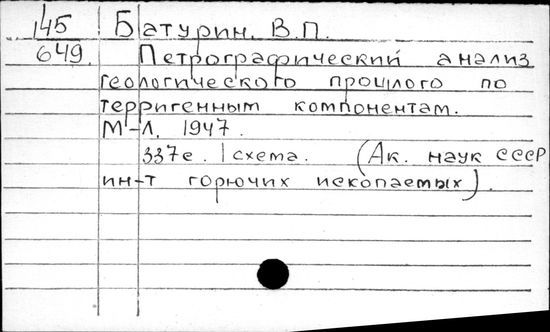 145 Батурин. В.П.
649. Петрографический анализ
геологического прошлого по
терригенным компонентам.
М-Л, 1947.
337с. 1 схема. (Ак. наук СССР
ин-т горючих ископаемых).